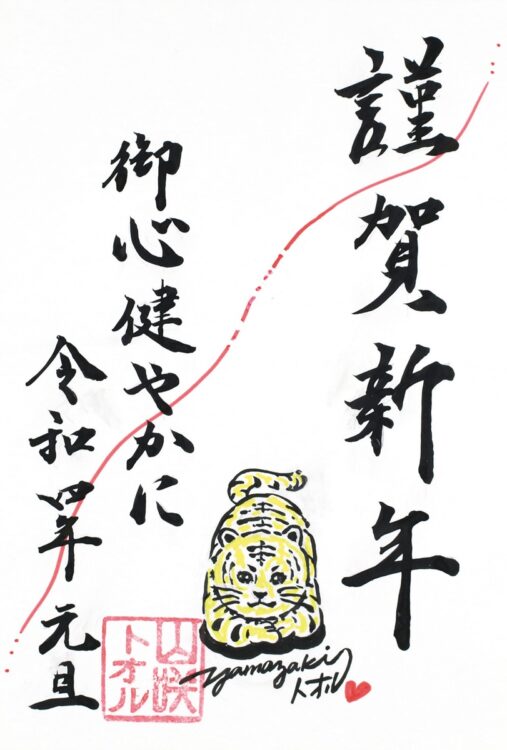 謹賀新年
御心健やかに
令和四年元旦
山咲
トオル
yamazaki
トオル